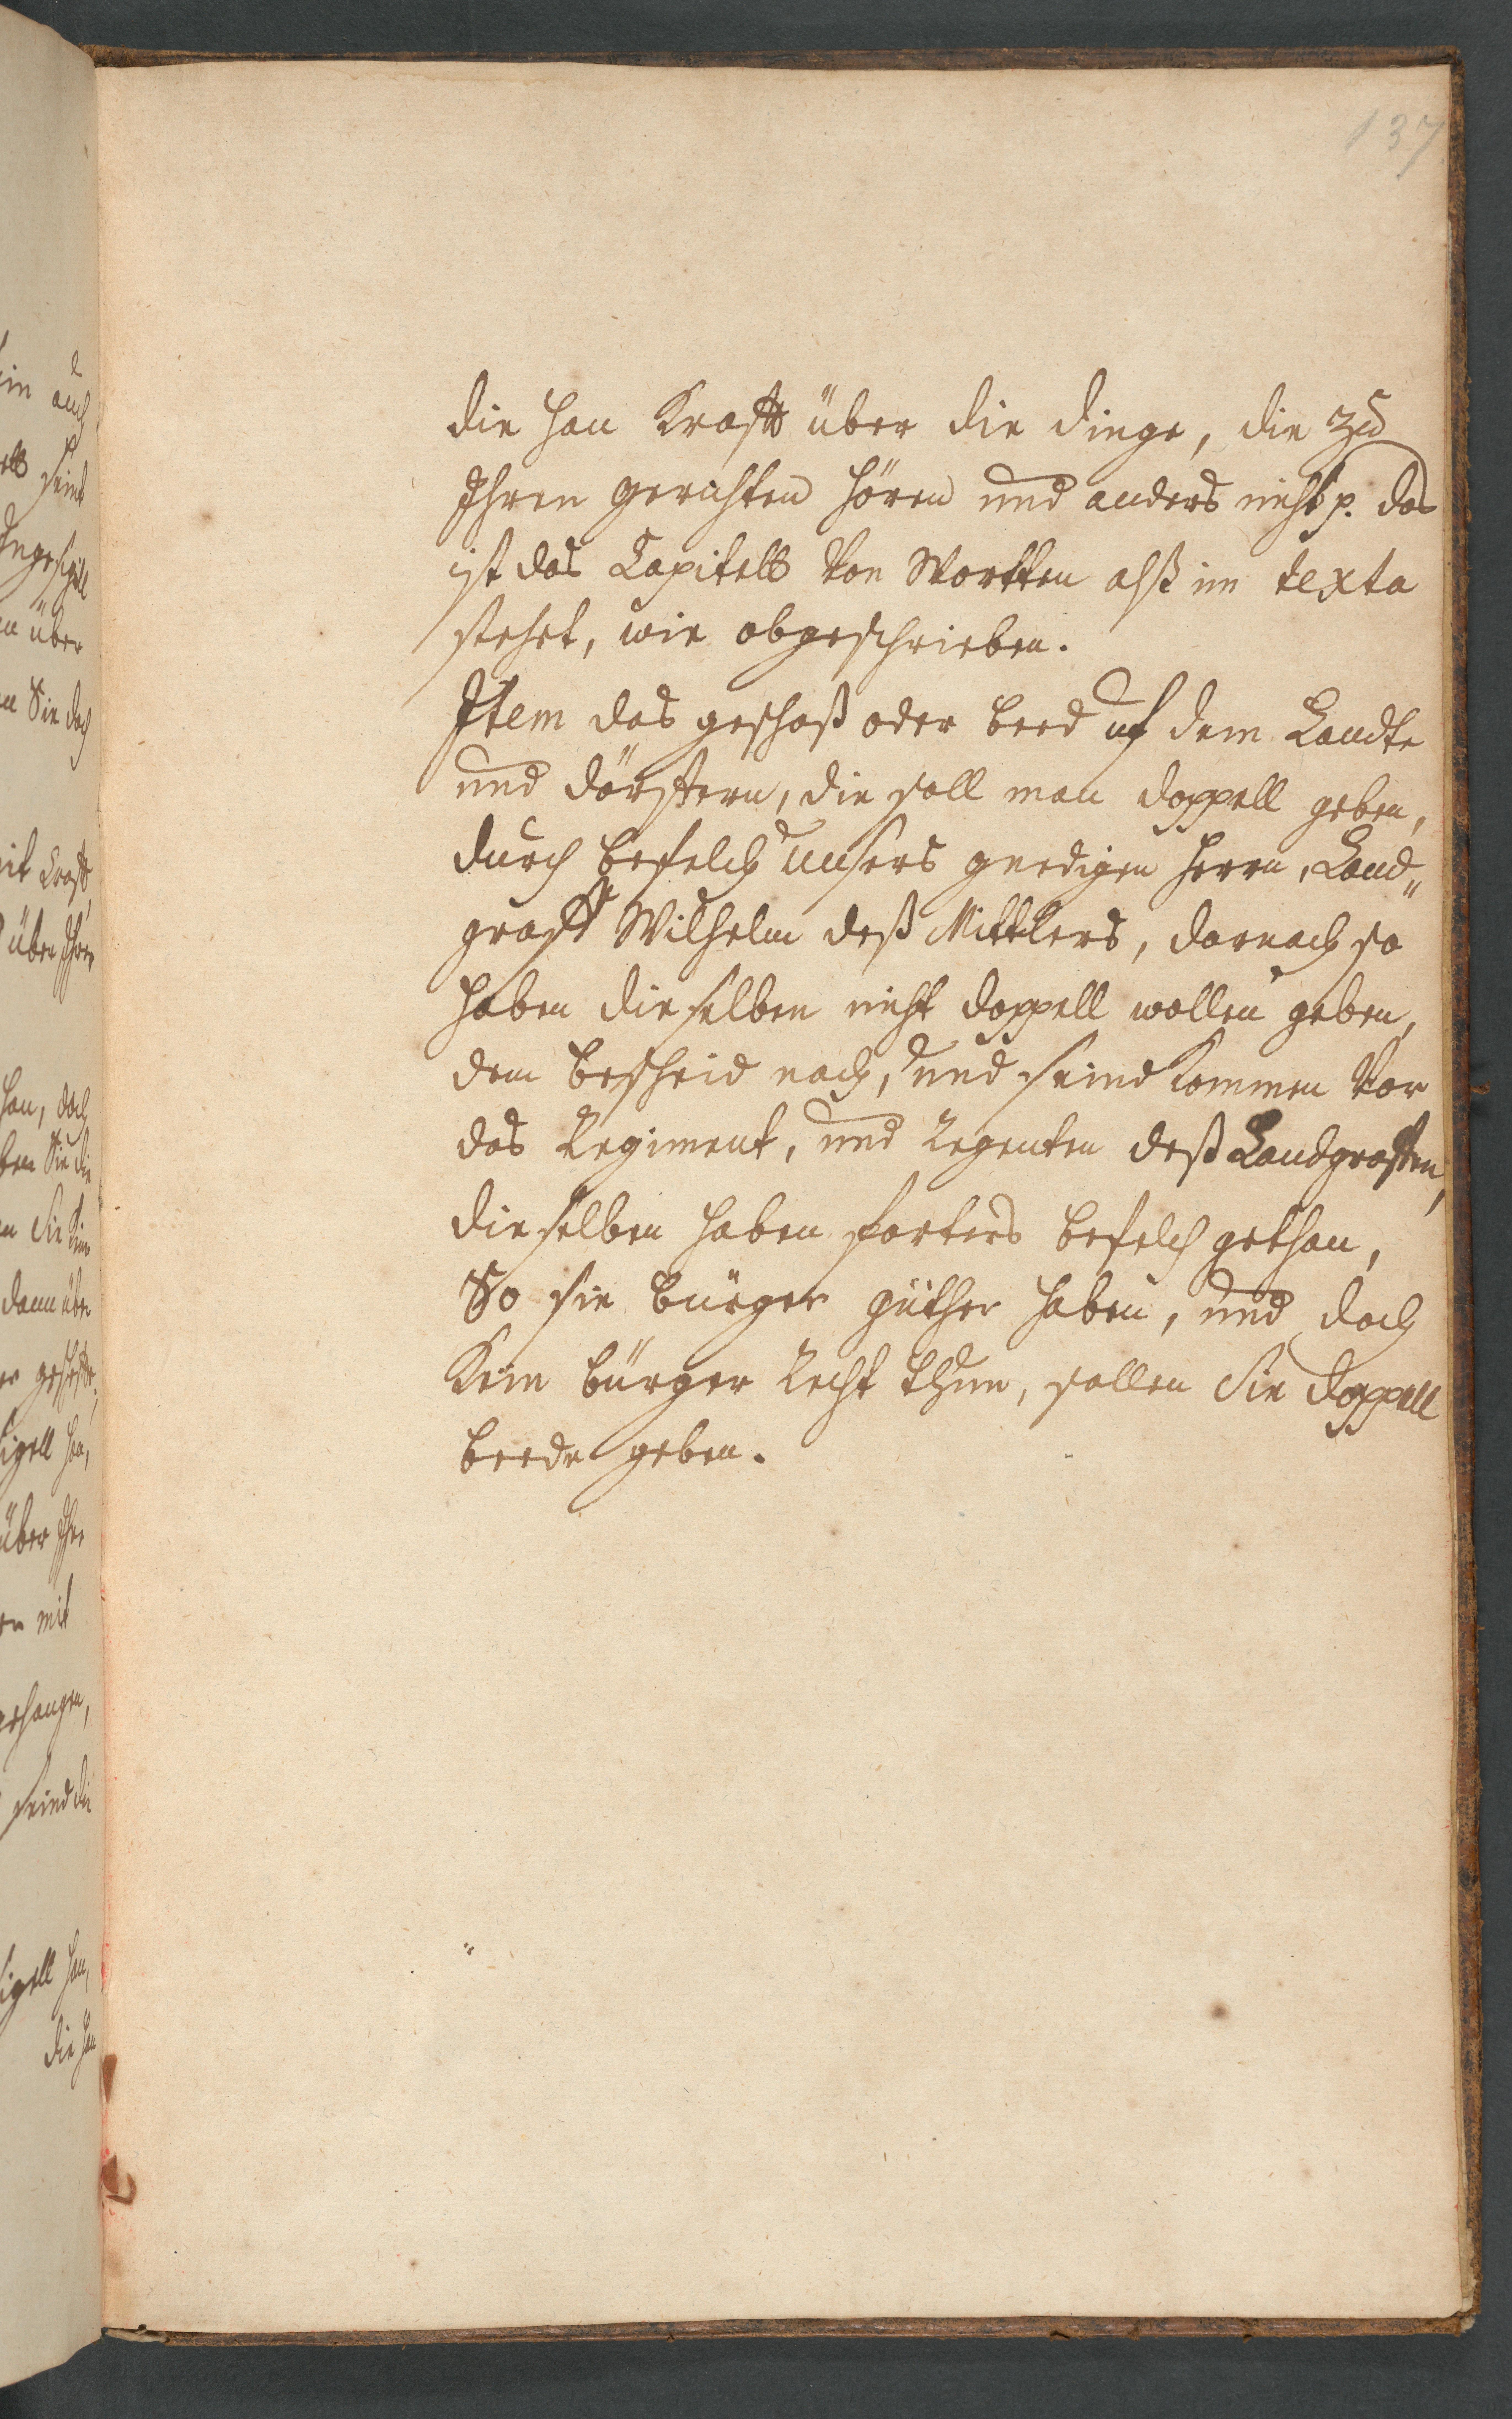 137
die han Krafft über die dinge, die zu
Ihren gerichten hören und anders nicht p. das
ist das Capitell von Wortten alß im texta
stehet, wie obgeschrieben.
Item das geschoß oder beed uf dem Landte
und dörffern, die soll man doppell geben,
durch befelch unsers gnedigen Herrn, Land„
graff Wilhelm deß Mittlers, darnach so
haben dieselben nicht doppell wollen geben,
dem bescheid nach, und seind kommen vor
das Regiment, und Regenten deß Landgraffen,
dieselben haben forters befelch gethan,
So sie bürger güther haben, und doch
Kein bürger Recht thun, sollen Sie doppell
beede geben.